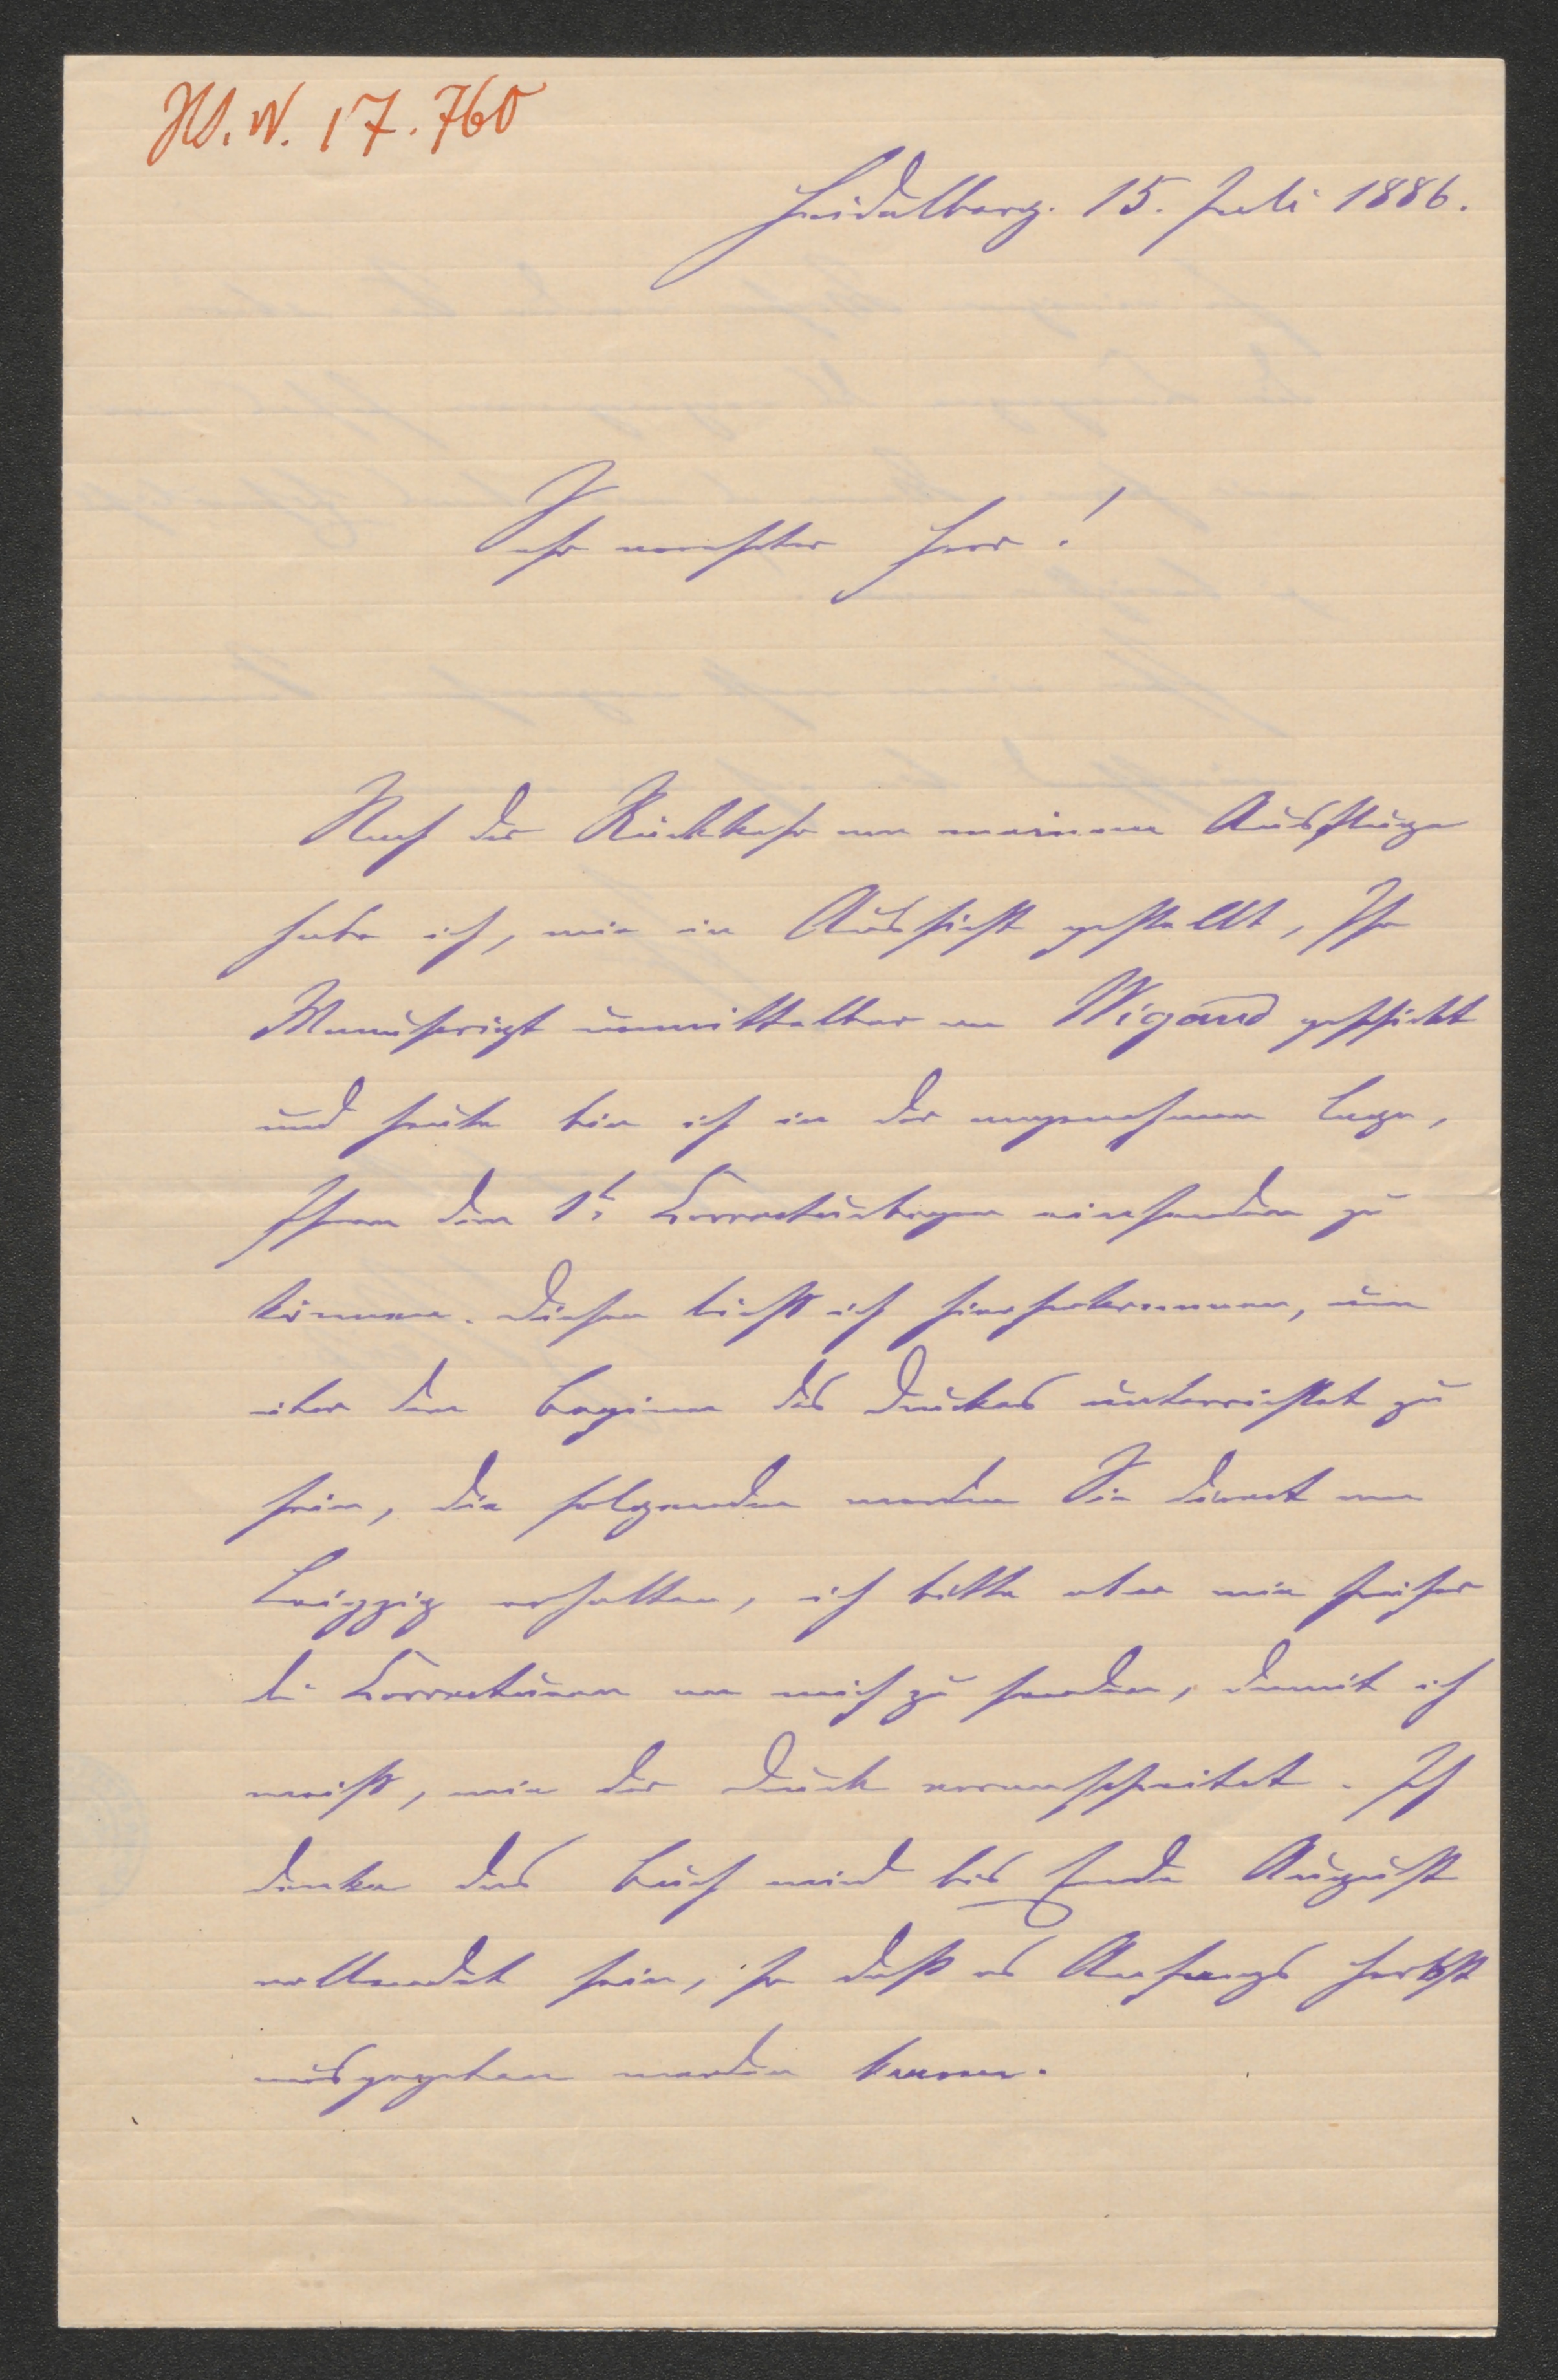 H.I.N. 17.760
Heidelberg. 15. Juli 1886.
Sehr verehrter Herr!
Nach der Rückkehr von meinem Ausfluge
habe ich, wie in Aussicht gestellt, Ihr
Manuscript unmittelbar an Wigand geschickt
und heute bin ich in der angenehmen Lage,
Ihnen den 1t. Correcturbogen einsenden zu
können. Diesen ließ ich hierherkommen, um
über den Beginn des Druckes unterrichtet zu
sein, die folgenden werden Sie direct von
Leipzig erhalten, ich bitte aber wie früher
die Correcturen an mich zu senden, damit ich
weiß, wie der Druck voranschreitet. Ich
denke das Buch wird bis Ende August
vollendet sein, so daß es Anfangs Herbst
ausgegeben werden kann.